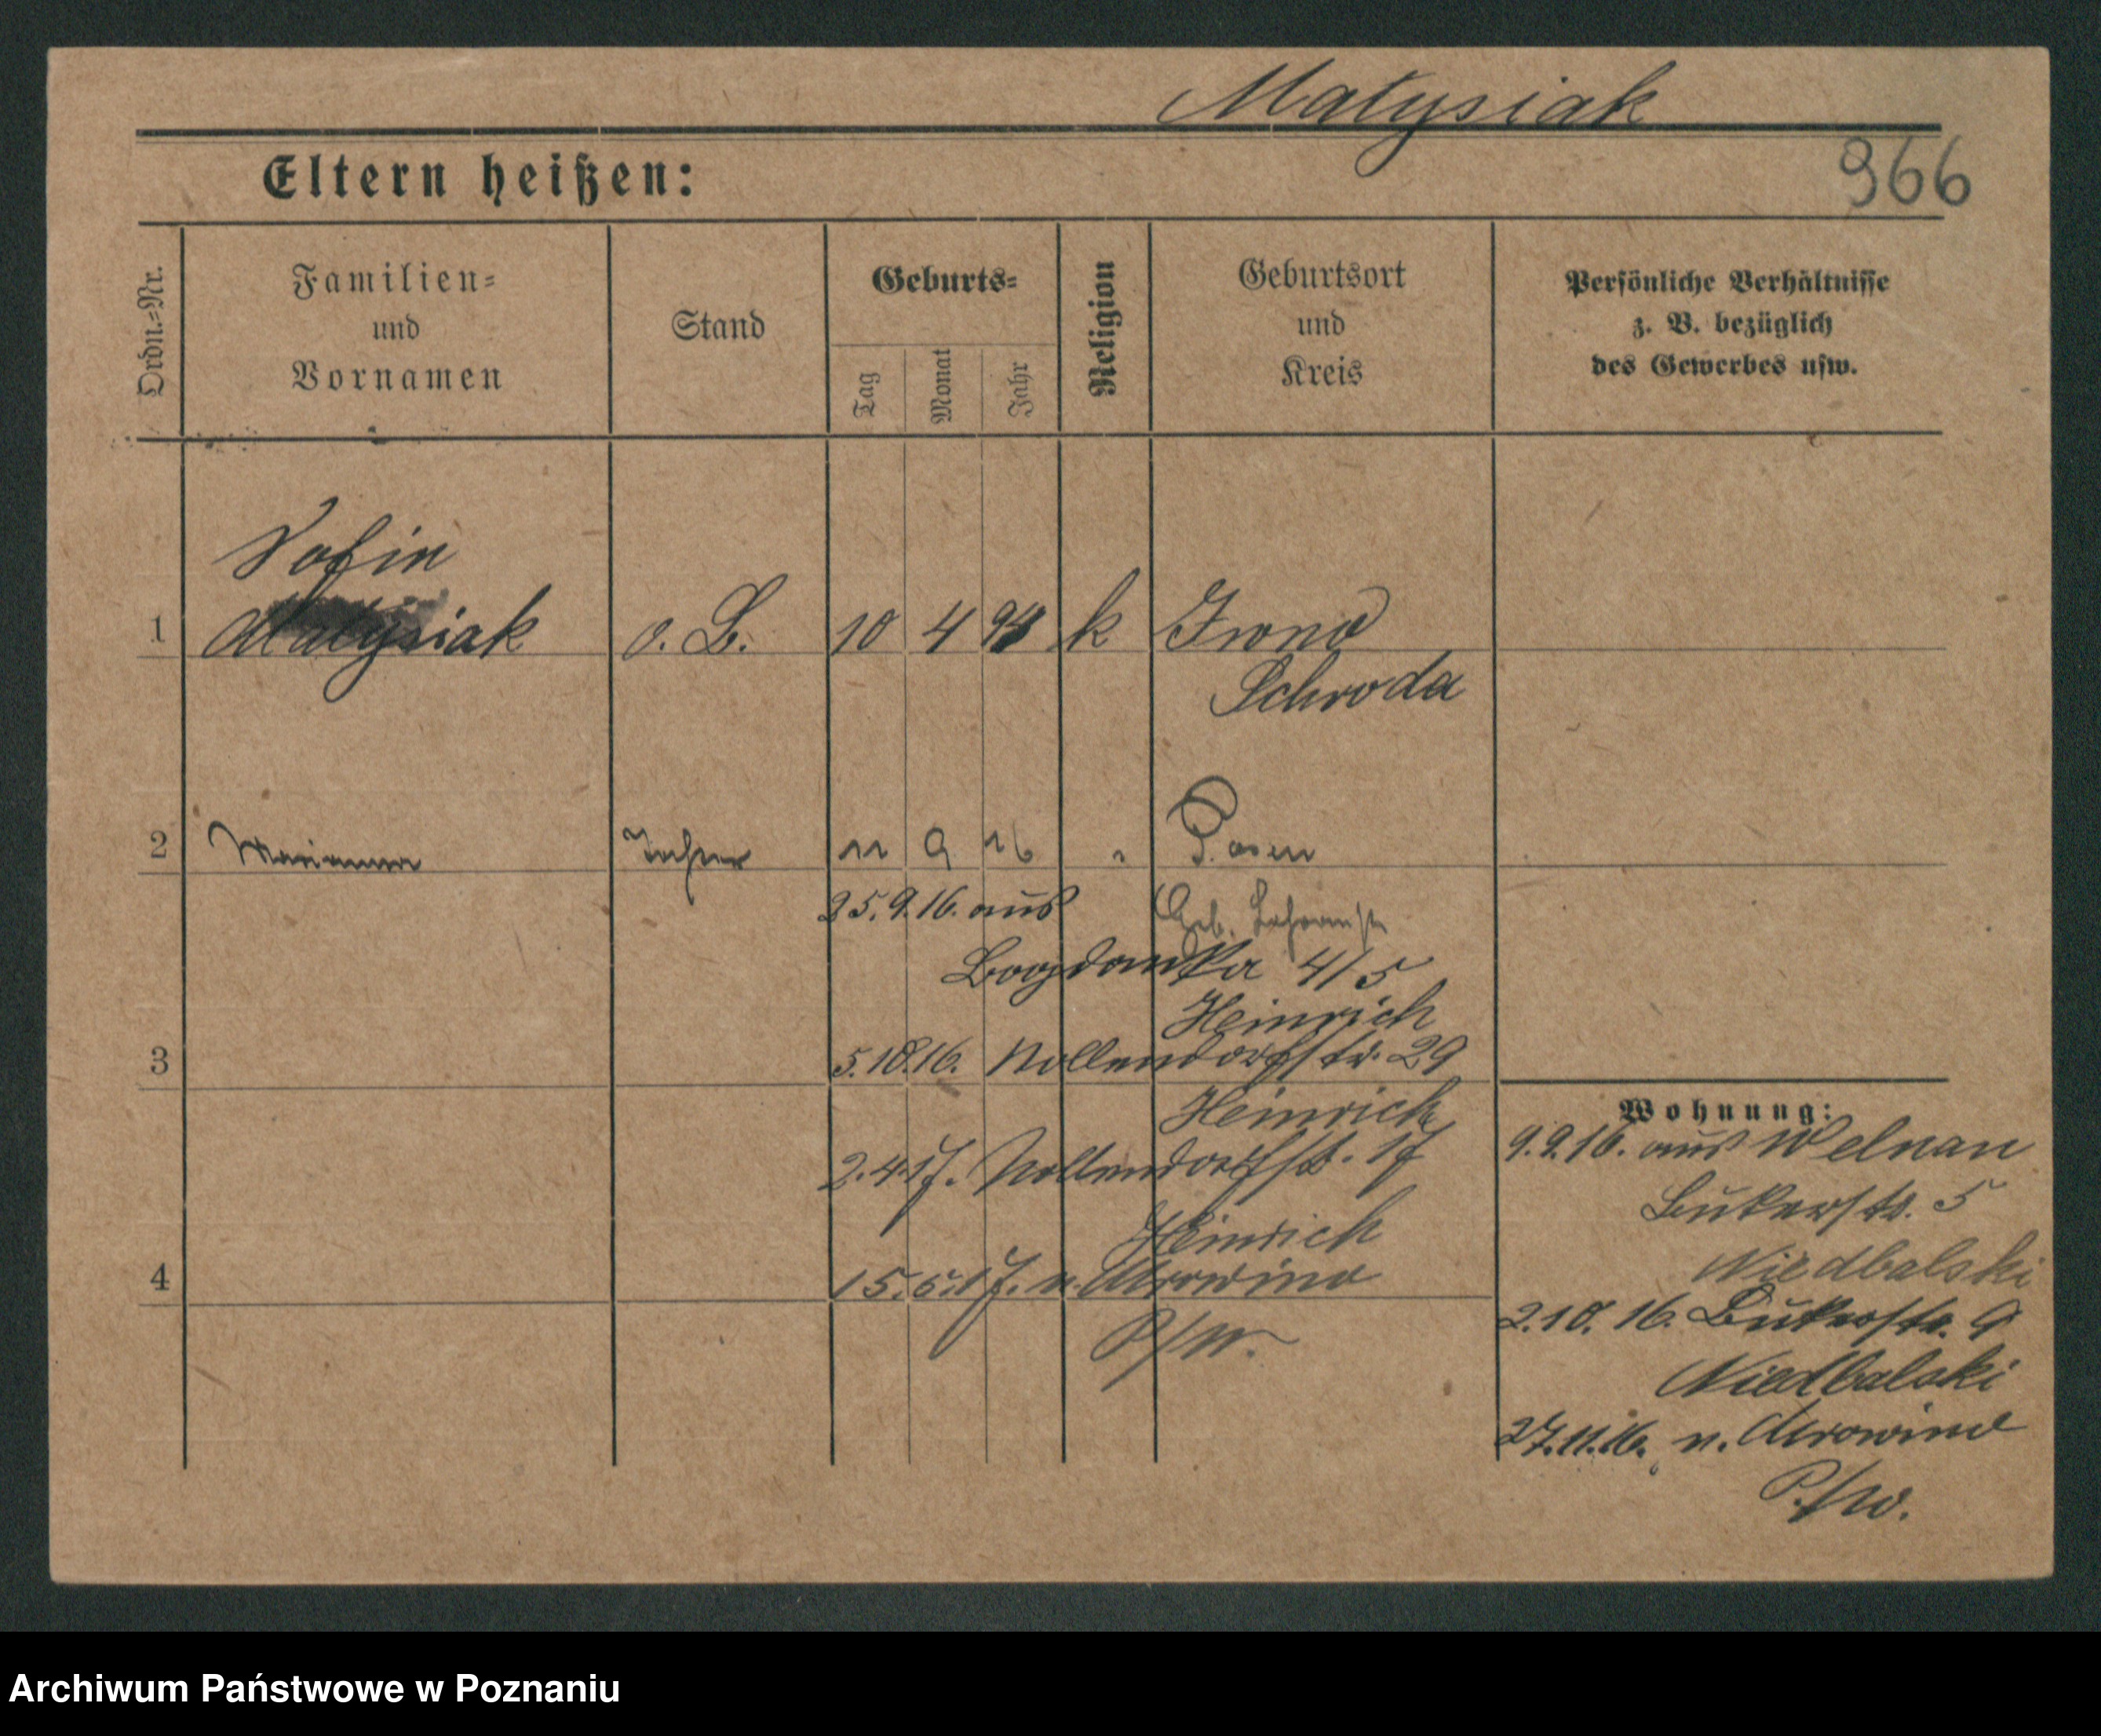 Matysiak
966
Eltern heißen:
Ordn.=Nr.
Familien=
und
Vornamen
Stand
Geburts=
Tag
Monat
Jahr
Religion
Geburtsort
und
Kreis
Persönliche Verhältnisse
z. B. bezüglich
des Gewerbes usw.
Sofie
1 Matysiak o. B. 10 4 k
Schroda
2 Marianna Tochter 11 9 16 " Posen
25.9.16. aus Geb.
Bogdanka 4/5
Heinrich
3 5.10.16. Nollendorfstr. 29
Heinrich
2.4.17. Nollendorfstr. 17
Heinrich
4 15.5.17. n. Mrowino
P/W.
Wohnung:
9.9.16. aus Welnau
Bukerstr. 5
Niedbalski
2.10.16. Bukerstr. 9
Niedbalski
27.11.16. n. Mrowino
P/W.
Archiwum Państwowe w Poznaniu